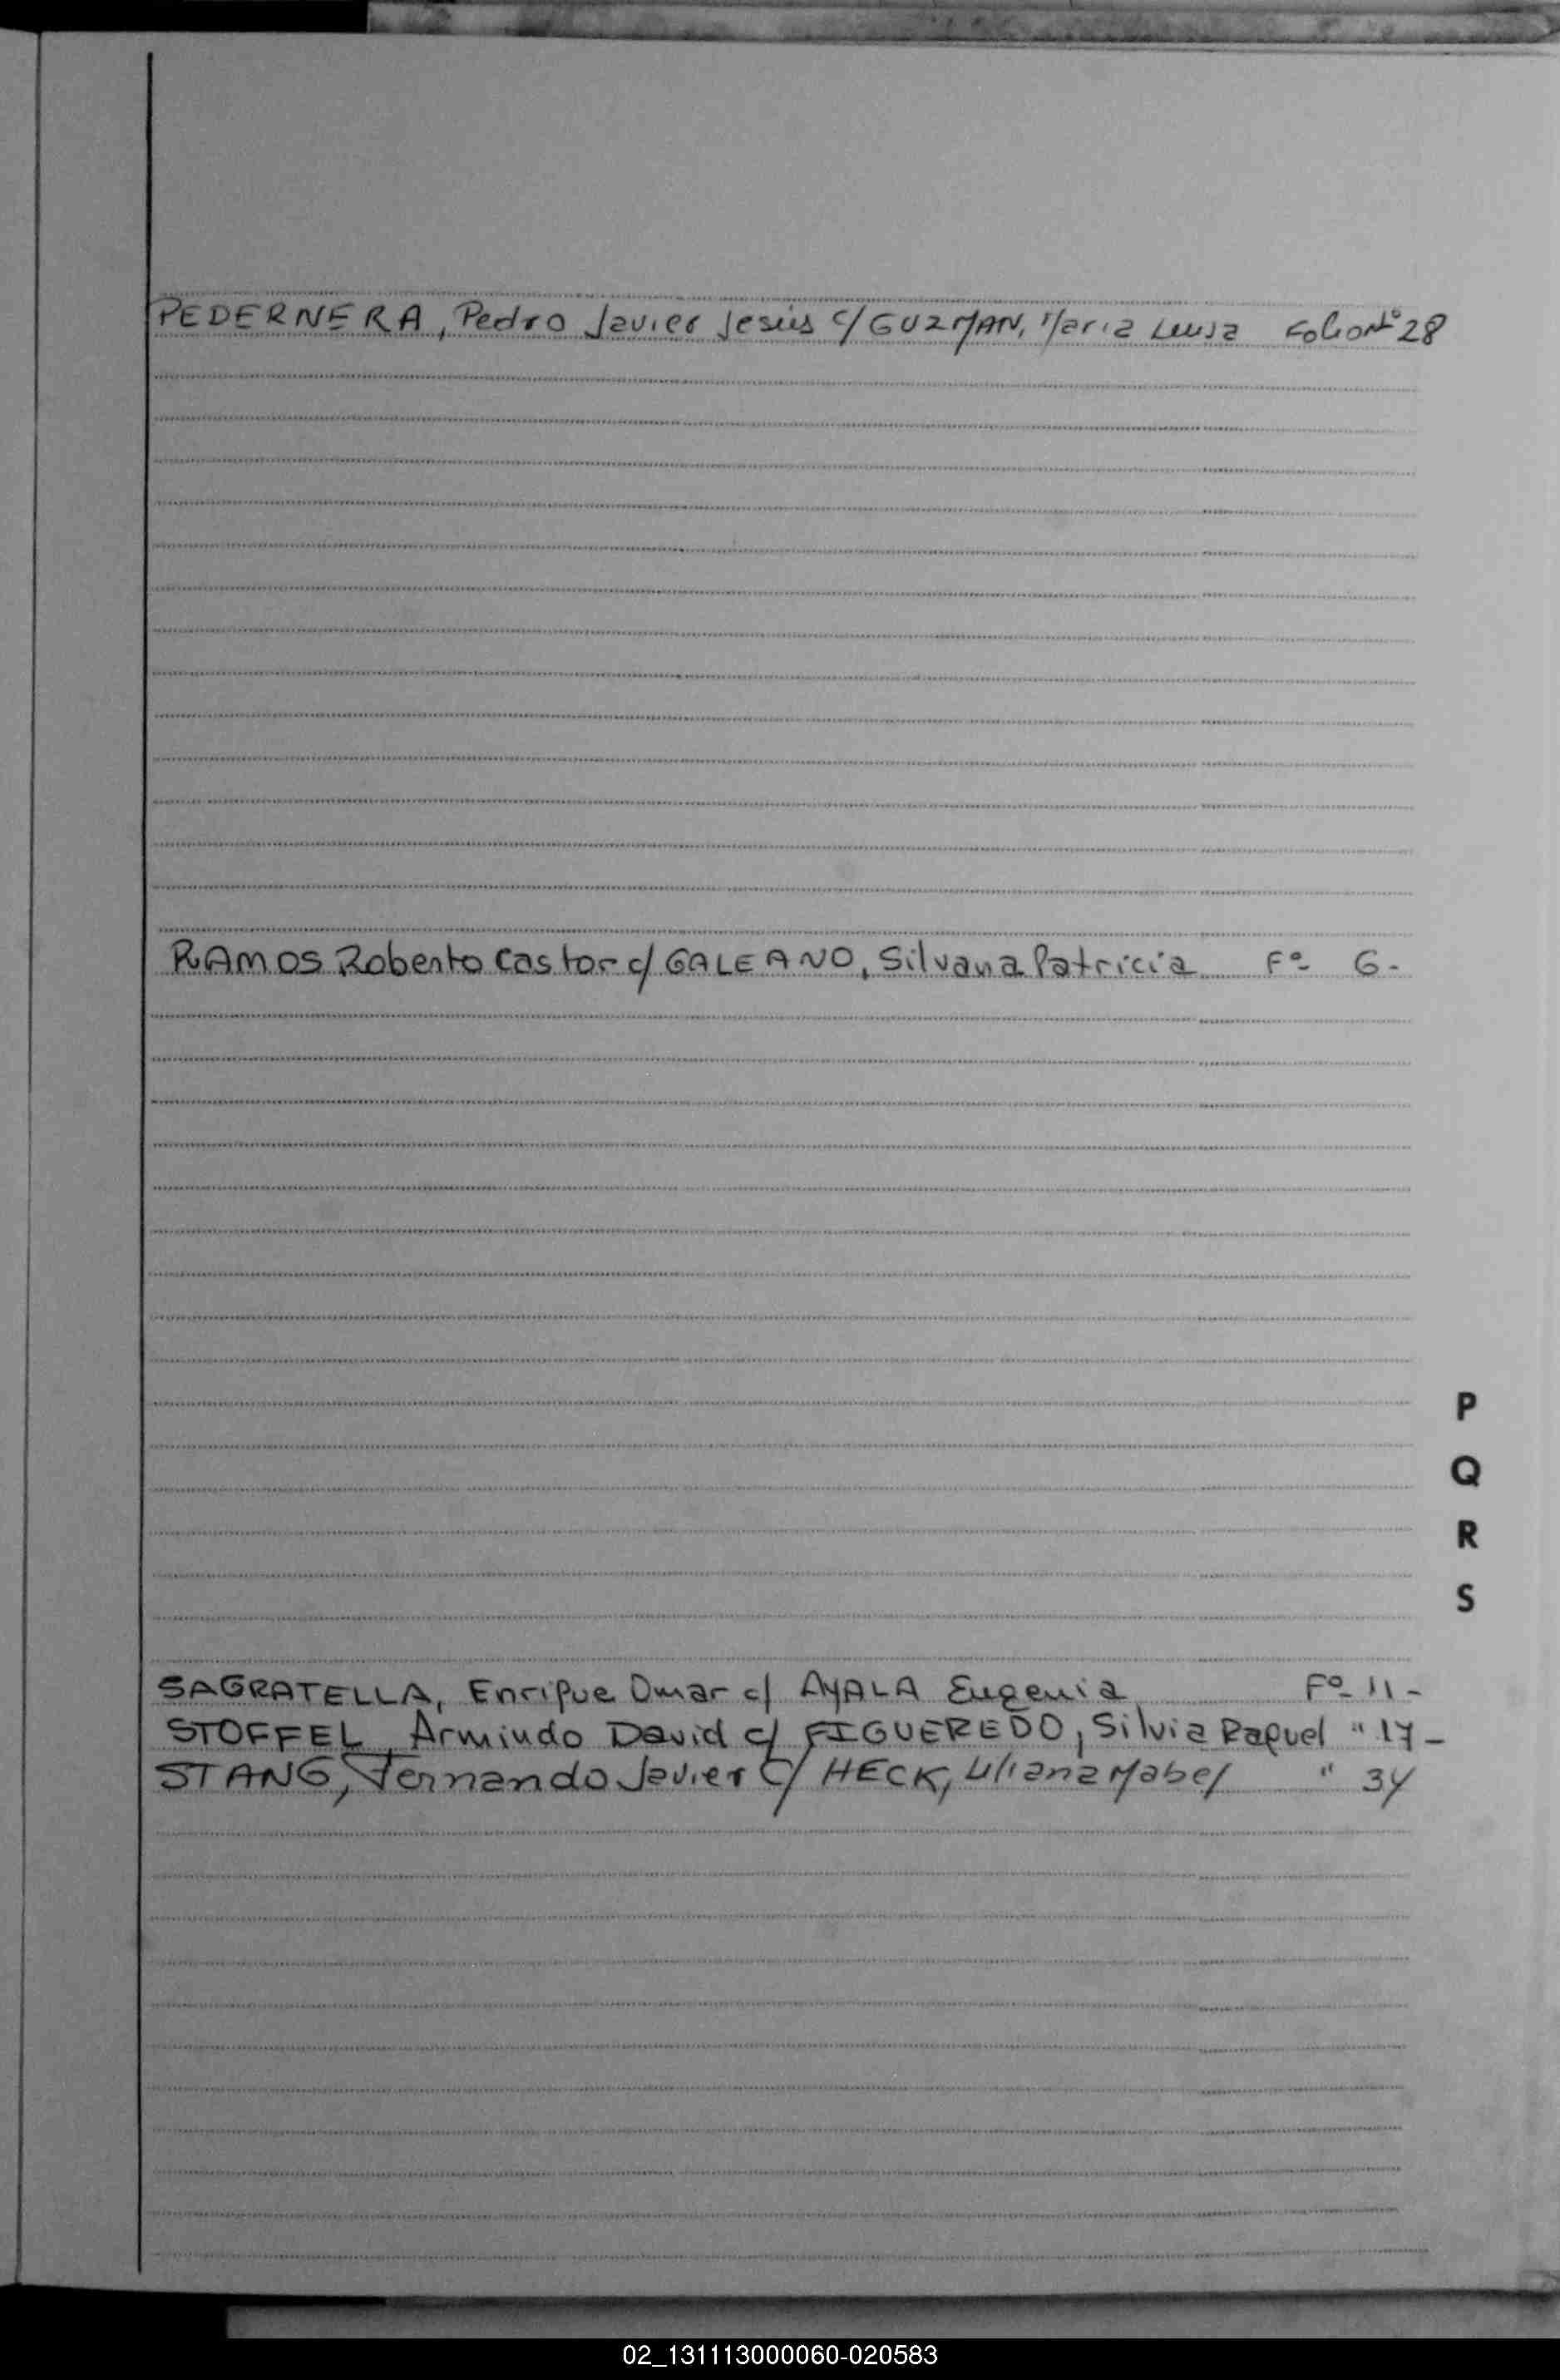 PEDERNERA, Pedro Javier Jesús c/ GUZMAN, Maria Luisa Folio Nº 28
RAMOS Roberto Castor c/ GALEANO, Silvana Patricia Fº 6-
P
Q
R
S
SAGRATELLA, Enrique Omar c/ AYALA Eugenia Fº 11-
STOFFEL, Armindo David c/ FIGUEREDO, Silvia Raquel " 17-
STANG, Fernando Javier c/ HECK, Liliana Mabel " 34
02_131113000060-020583